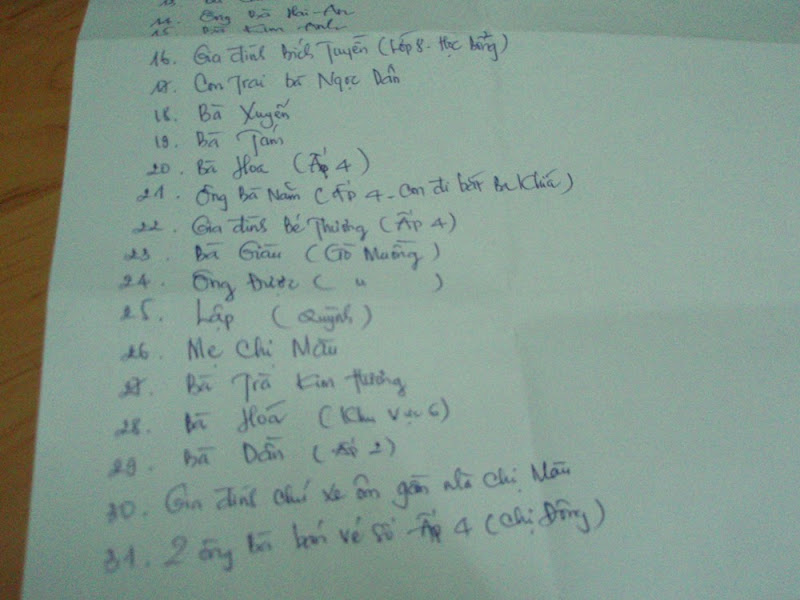 14. Ông Bà Hai An
15. Bà Kim Anh
16. Gia đình Bích Tuyền (Lớp 8 - Học Bổng)
17. Con Trai bà Ngọc Dân
18. Bà Xuyến
19. Bà Tám
20. Bà Hoa (Ấp 4)
21. Ông Bà Năm (Ấp 4 - con đi bắt Ba Khía)
22. Gia đình Bé Thương (Ấp 4)
23. Bà Giàu (Gò Muồng)
24. Ông Được ( " )
25. Lập (Quỳnh)
26. Mẹ Chị Mão
27. Bà Trà Kim Hương
28. Bà Hoá (Khu vực 6)
29. Bà Dần (Ấp 2)
30. Gia đình chú xe ôm gần nhà chị Mão
31. 2 ông Bà bán vé số Ấp 4 (Chị Đông)